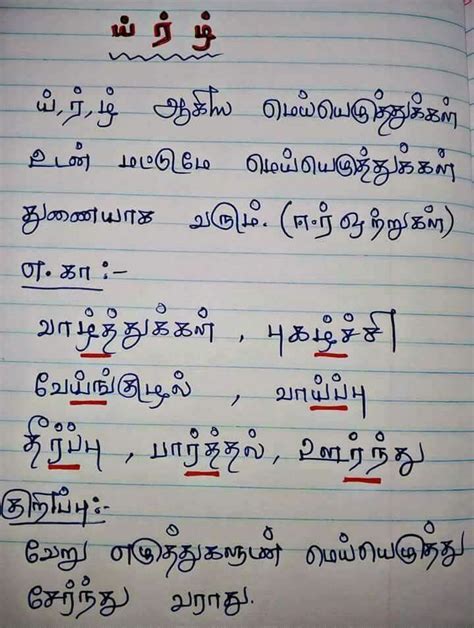 ய் ர் ழ்
ய், ர், ழ் ஆகிய மெய்யெழுத்துக்கள்
உடன் மட்டுமே மெய்யெழுத்துக்கள்
துணையாக வரும். (ஈர் ஒற்றுகள்)
எ. கா :-
வாழ்த்துக்கள் , புகழ்ச்சி
வேய்ங்குழல் , வாய்ப்பு
தீர்ப்பு , பார்த்தல் , ஊர்ந்து
குறிப்பு:-
வேறு எழுத்துகளுடன் மெய்யெழுத்து
சேர்ந்து வராது.